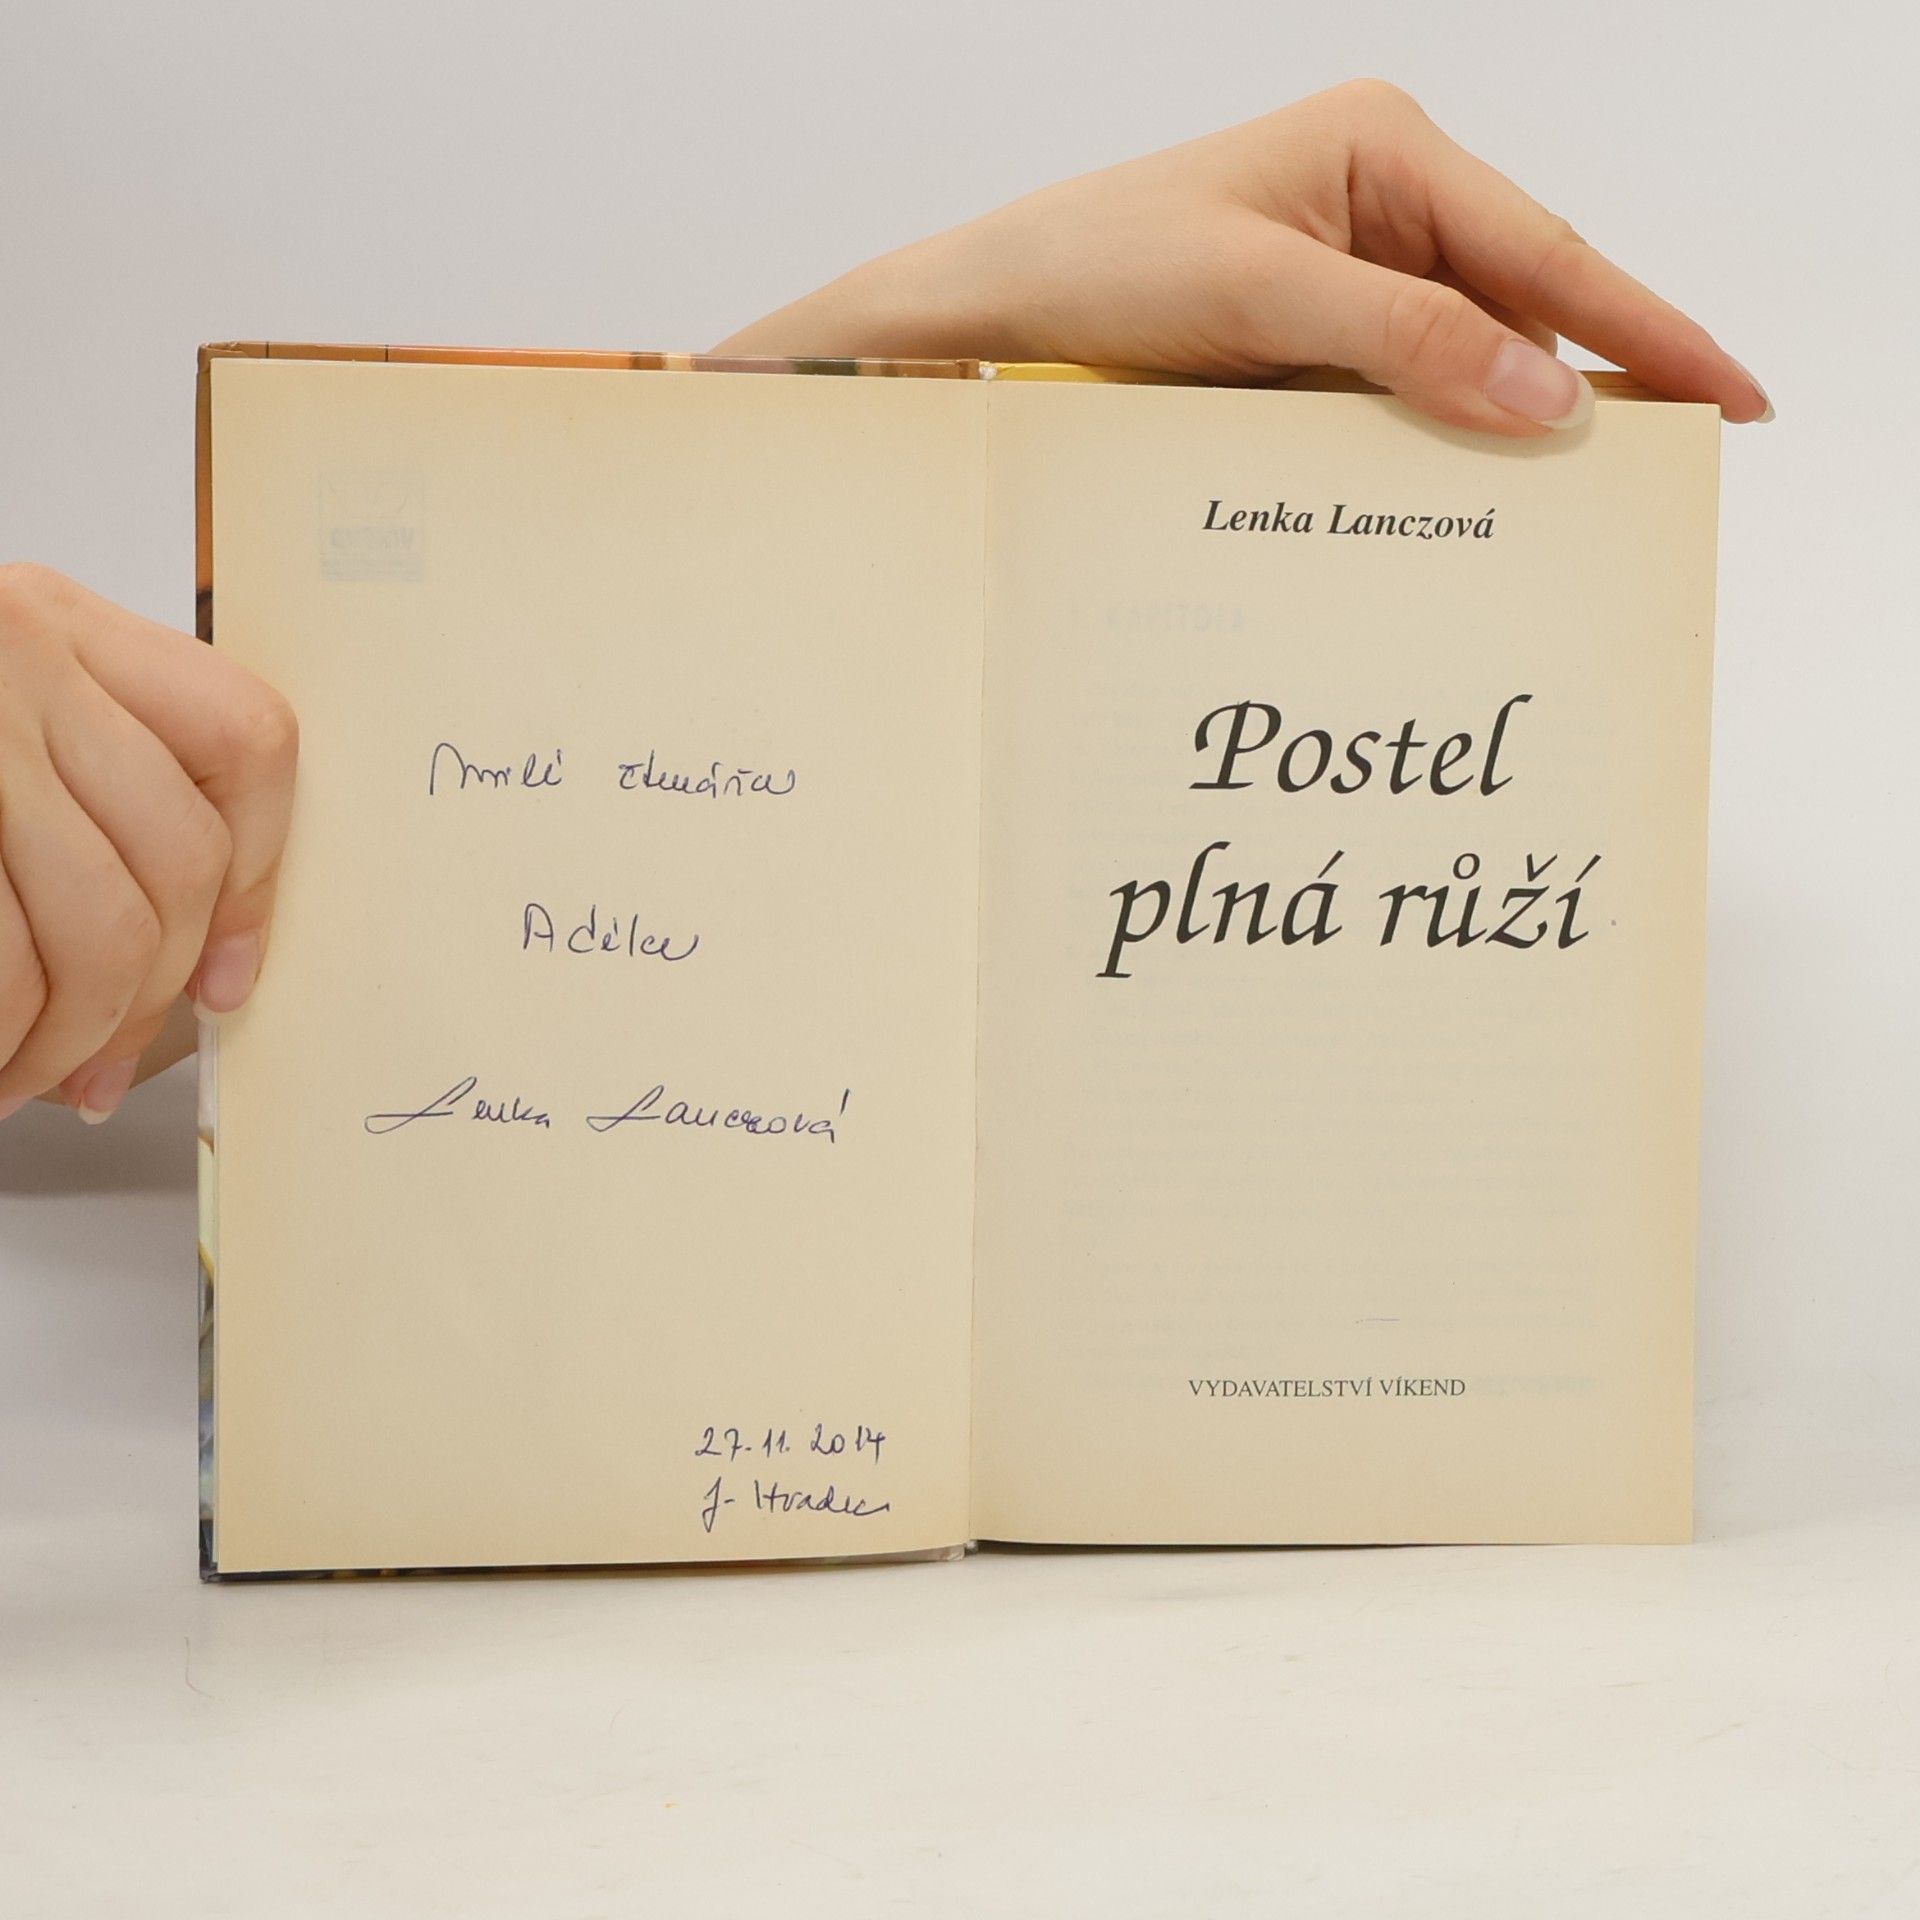 Milé čtenářce
Adélce
Lenka Lanczová
27.11.2014
J. Hradec
Lenka Lanczová
Postel
plná růží
VYDAVATELSTVÍ VÍKEND